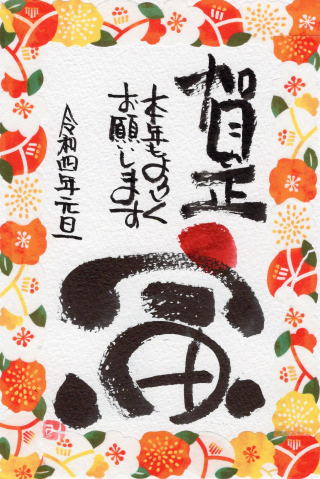 賀正
本年もよろしく
お願いします
令和四年元旦
寅